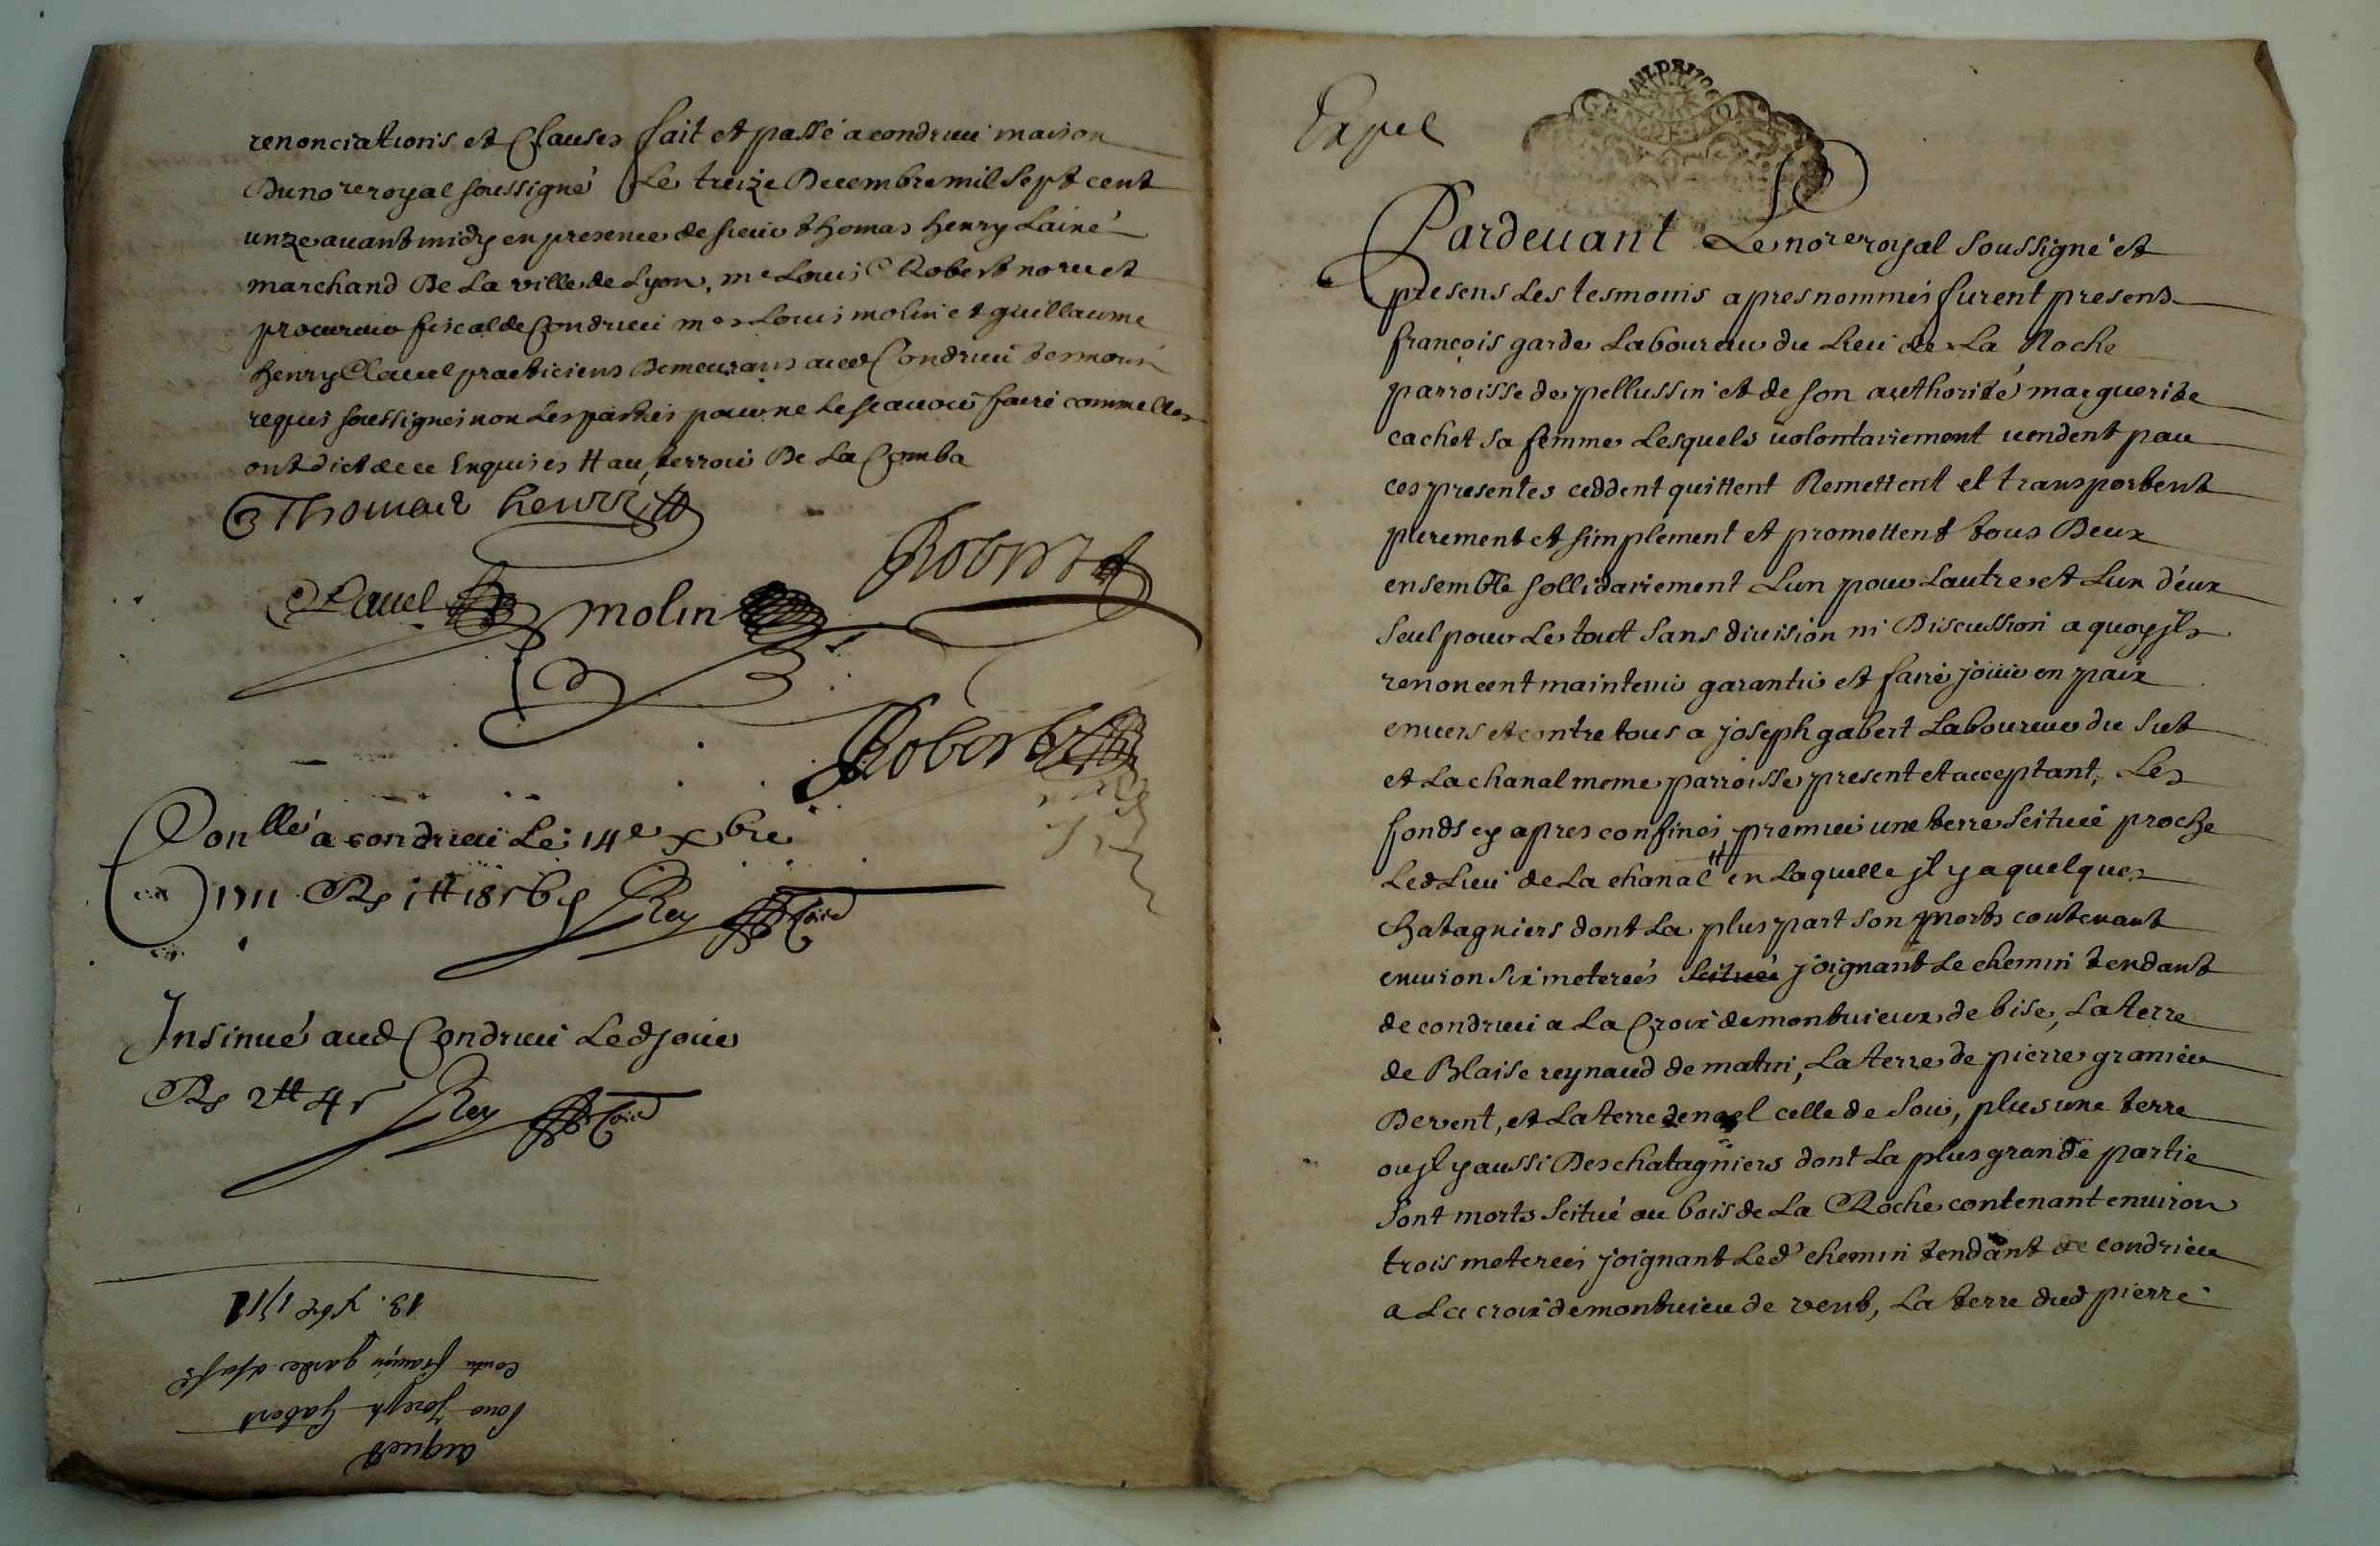 renonciations et Clauses fait et passé a condrieu maison
Du nore royal soussigné Le treize Decembre mil sept cent
unze avant midy en presence de sieur thomas henry Lainé
marchand De La ville de Lyon, me Louis Robert nore et
procureur fiscal de Condrieu mes Louis molin et guillaume
henry Clavel practiciens Demeurans aud Condrieu tesmoins
requis soussignes non Les parties pour ne le scavoir faire comme elles
ont dict de ce Enquises # au terroir De La Comba
Thomas henry
Clavel molin Robert
Robert
Conllé a condrieu Le 14e xbre
1711 Rs 1# 18s 6d Rey
Insinué aud Condrieu Led jour
Rs 2# 4s Rey
aquet
Pour Joseph Gabert
contre françois garde et sa fe
13. xbre 1711
Expel
Pardevant Le nore royal soussigné et
presens Les tesmoins apres nommés furent presens
françois garde Laboureur du Lieu de La Roche
parroisse de pellussin et de son authorité marguerite
cachet sa femme Lesquels volontairement vendent par
ces presentes ceddent quittent Remettent et transportent
purement et simplement et promettent tous Deux
ensemble sollidairement Lun pour Lautre et Lun d'eux
seul pour Le tout sans division ni Discussion a quoy jls
renoncent maintenir garantir et faire joüir en paix
envers et contre tous a joseph gabert Laboureur du Suet
et La chanal meme parroisse present et acceptant, Les
fonds cy apres confinés, premier une terre scituée proche
Led Lieu de La chanal # en Laquelle jl y a quelques
chatagniers dont La pluspart son morts contenant
environ six meterées scituée joignant Le chemin tendant
de condrieu a La Croix de montvieux de bise, La terre
de Blaise reynaud de matin, La terre de pierre granier
De vent, et La terre de noel celle de soir, plus une terre
ou jl y aussi Des chatagniers dont La plus grande partie
sont morts scitué au bois de La Roche contenant environ
trois meterées joignant Led' chemin tendant de condrieu
a La croix de montvieu de vent, La terre dud pierre